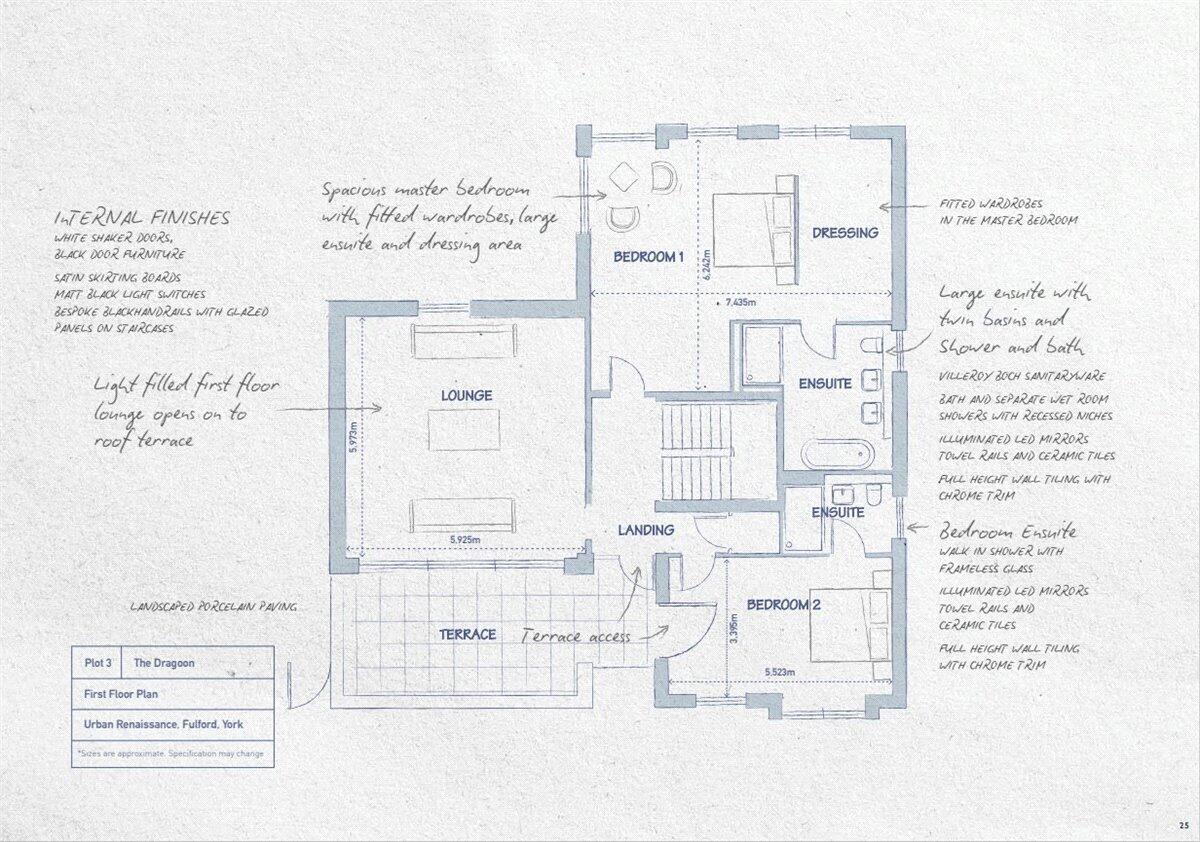 InTERNAL FINISHES
WHITE SHAKER DOORS,
BLACK DOOR FURNITURE
SATIN SKIRTING BOARDS
MATT BLACK LIGHT SWITCHES
BESPOKE BLACKHANDRAILS WITH GLAZED
PANELS ON STAIRCASES
Light filled first floor
lounge opens on to
roof terrace
LANDSCAPED PORCELAIN PAVING
Spacious master bedroom
with fitted wardrobes, large
ensuite and dressing area
BEDROOM 1
DRESSING
6,242m
7,435m
LOUNGE
5,973m
5,925m
ENSUITE
ENSUITE
LANDING
BEDROOM 2
3,395m
5,523m
TERRACE
Terrace access
FITTED WARDROBES
IN THE MASTER BEDROOM
Large ensuite with
twin basins and
Shower and bath
VILLEROY BOCH SANITARYWARE
BATH AND SEPARATE WET ROOM
SHOWERS WITH RECESSED NICHES
ILLUMINATED LED MIRRORS
TOWEL RAILS AND CERAMIC TILES
FULL HEIGHT WALL TILING WITH
CHROME TRIM
Bedroom Ensuite
WALK IN SHOWER WITH
FRAMELESS GLASS
ILLUMINATED LED MIRRORS
TOWEL RAILS AND
CERAMIC TILES
FULL HEIGHT WALL TILING
WITH CHROME TRIM
Plot 3 The Dragoon
First Floor Plan
Urban Renaissance, Fulford, York
*Sizes are approximate. Specification may change
25